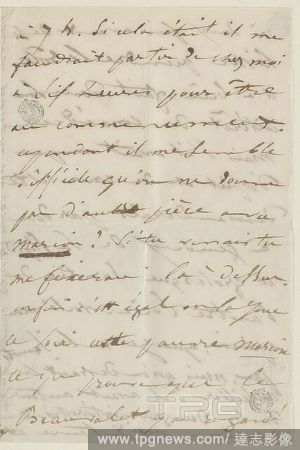 à 7 h. Si cela était il me
faudrait partir de chez moi
à six heures pour être
au commencement.
cependant il me semble
difficile qu'on ne donne
pas d'autre pièce avec
marion? Si tu venais tu
me fixerais là dessus
enfin c'est égal on la joue
ce soir cette pauvre marion
ce qui prouve que le
Beauvalet
TPG
IMAGES
www.tpgnews.com / 達志影像